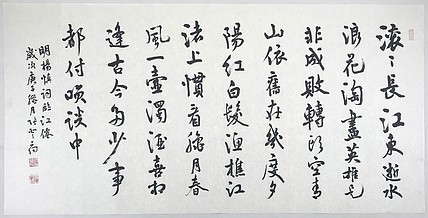 滚〻長江東逝水
浪花淘盡英雄是
非成敗轉頭空青
山依舊在幾度夕
陽紅白髮漁樵江
渚上慣看秋月春
風一壺濁酒喜相
逢古今多少事
都付笑談中
明楊慎詞臨江仙
歲次庚子